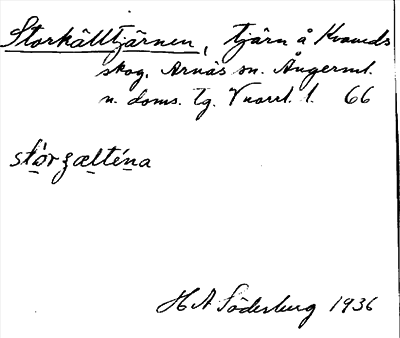 Storkälltjärnen, tjärn å Kvaveds
skog, Arnäs sn. Ångerml.
n. doms. tg. V norrl. l. 66
stórʒælténa
H A Söderberg 1936